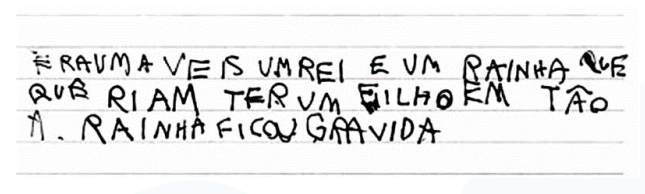 ERAUMA VEIS UMREI E UM RAINHA QUE
QUE RIAM TER UM FILHO EM TÃO
A. RAINHA FICOU GRAVIDA